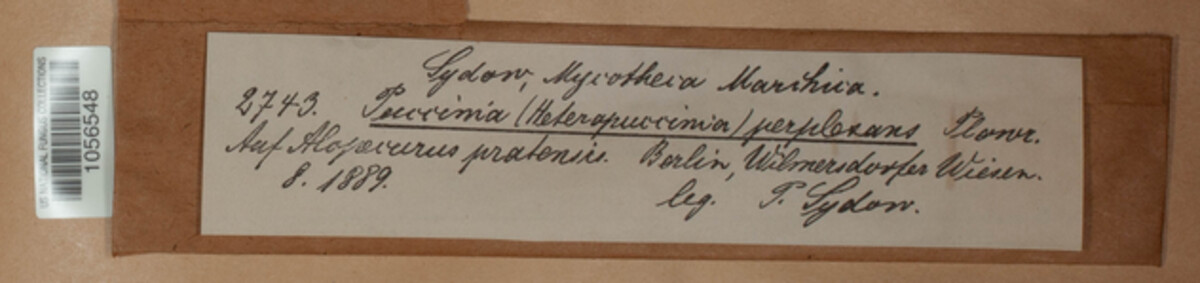 US NATIONAL FUNGUS COLLECTIONS
1056548
Sydow, Mycotheca Marchica.
2743. Puccinia (Heteropuccinia) perplexans Plowr.
Auf Alopecurus pratensis. Berlin, Wilmersdorfer Wiesen.
8. 1889.
leg. P. Sydow.